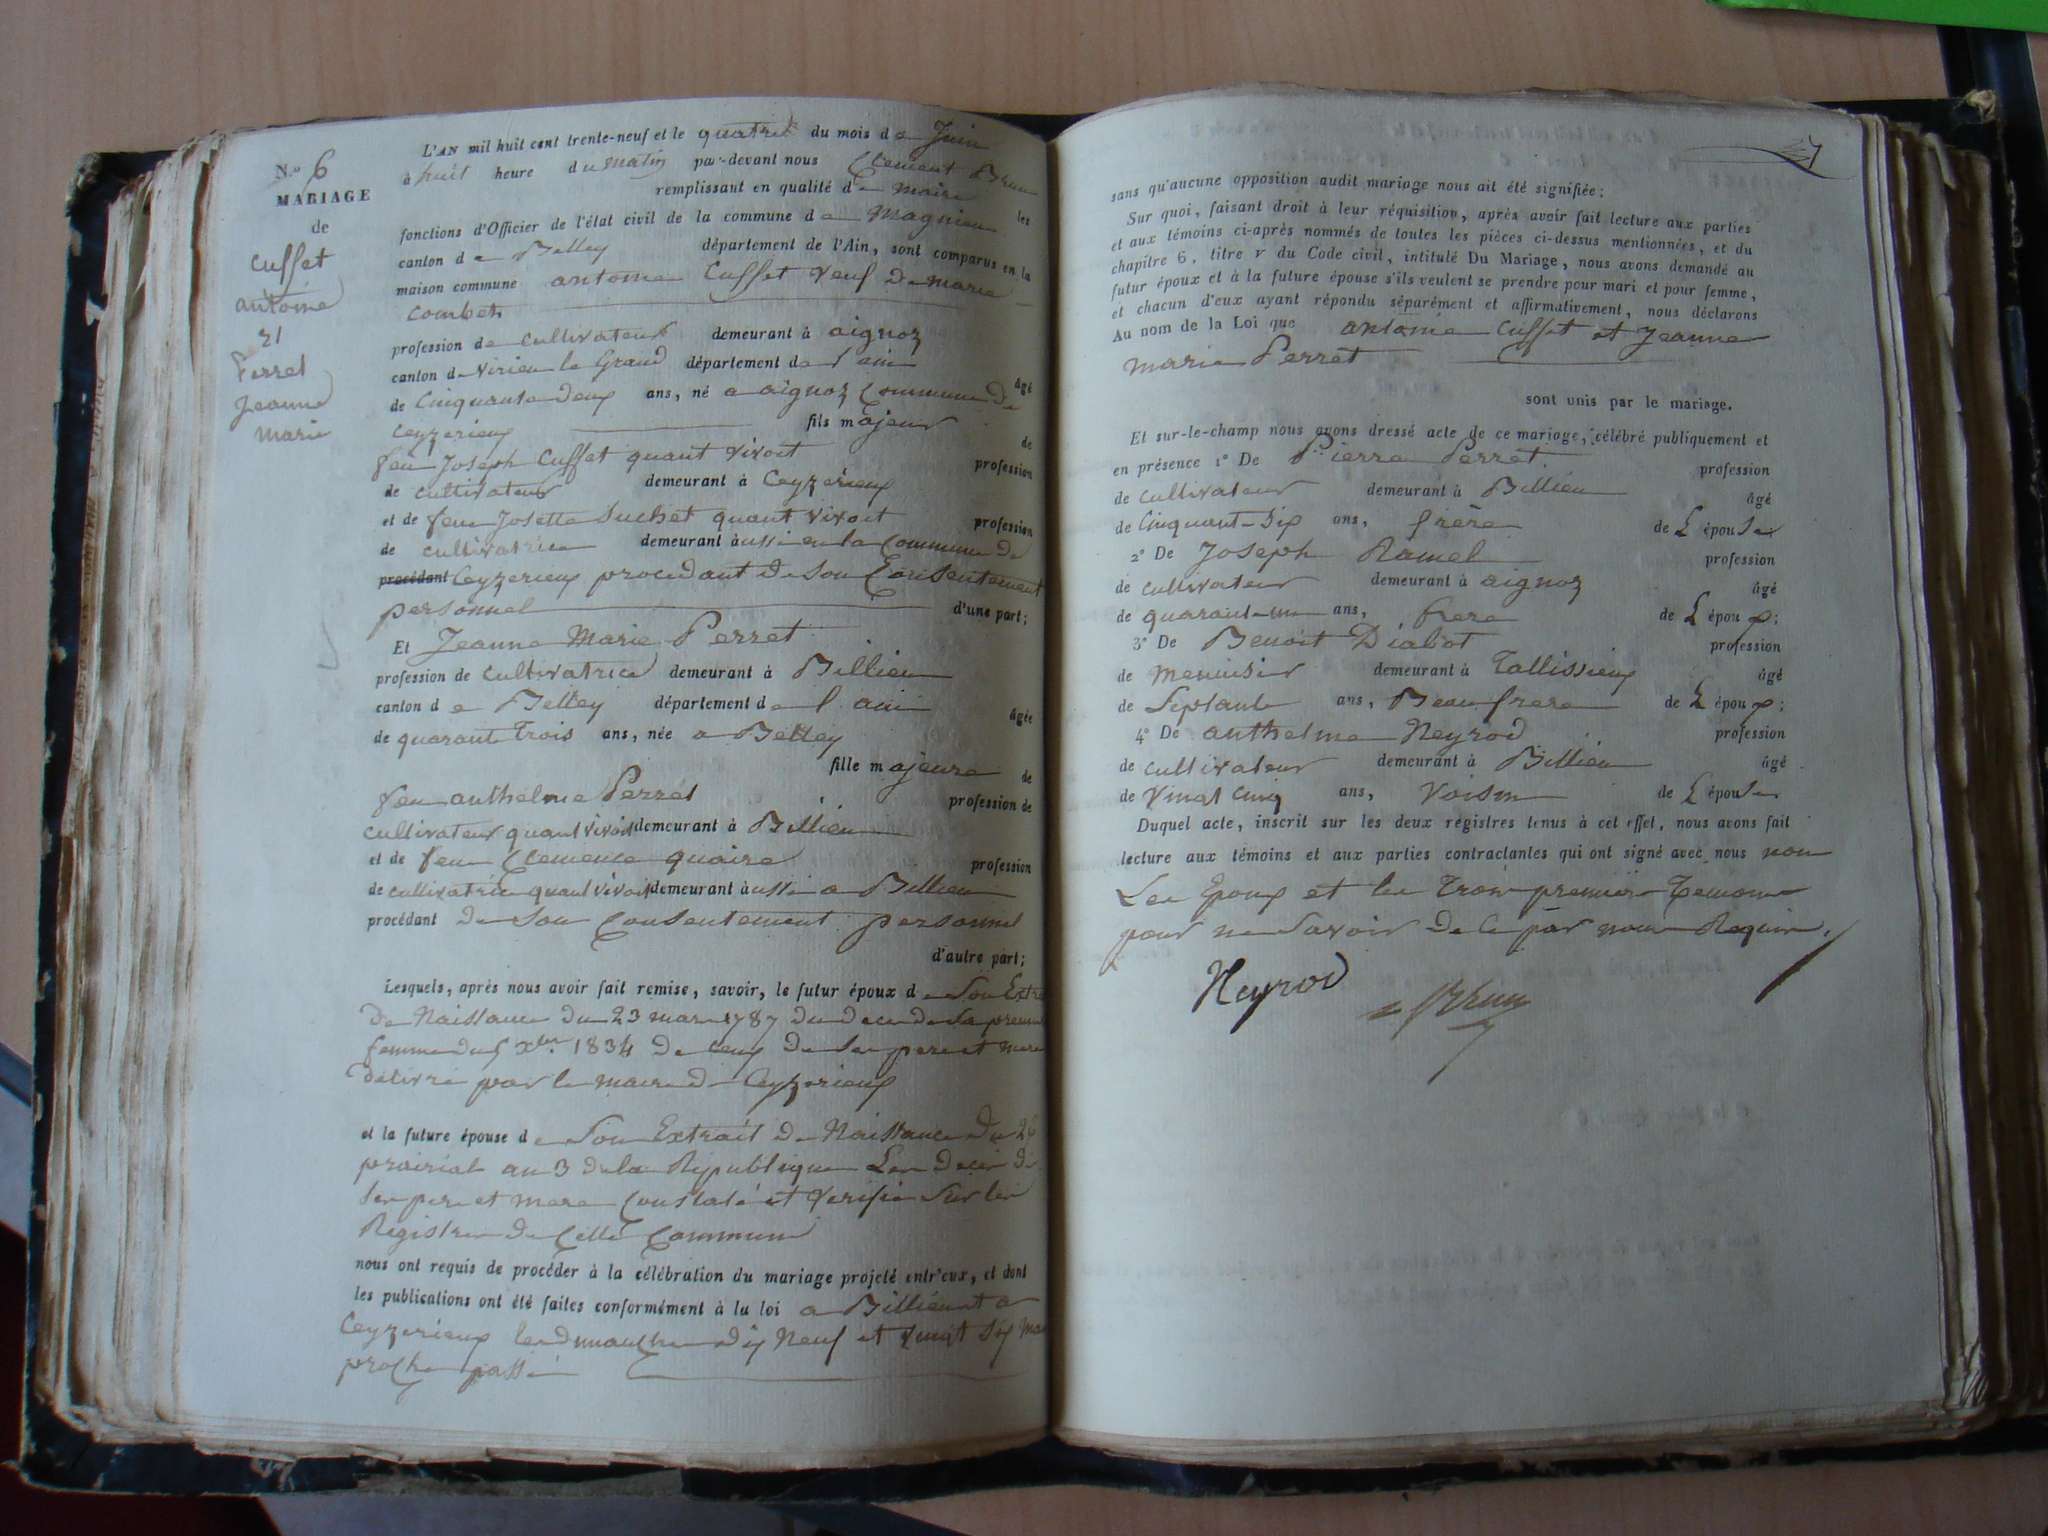 N.° 6
MARIAGE
de
Cusset
antoine
et
Perret
Jeanne
marie
L'AN mil huit cent trente-neuf et le quatre du mois de Juin
à huit heure du matin par-devant nous Clement Brun
remplissant en qualité de maire les
fonctions d'Officier de l'état civil de la commune de Magnieu
canton de Belley département de l'Ain, sont comparus en la
maison commune antoine Cusset veuf de marie
combet
profession de cultivateur demeurant à aignoz
canton de Virieu le Grand département de l'ain âgé
de Cinquante deux ans, né a aignoz Commune de
Ceyzerieux fils majeur de
feu Joseph Cusset quant vivoit profession
de cultivateur demeurant à Ceyzérieux
et de feue Josette Suchet quant vivoit profession
de cultivatrice demeurant aussi en la Commune de
procédant Ceyzerieux procedant de son Consentement
personnel d'une part;
Et Jeanne Marie Perret
profession de cultivatrice demeurant à Billieu
canton de Belley département de l'ain âgée
de quarante trois ans, née a Belley
fille majeure de
feu anthelme Perret profession de
cultivateur quant vivoit demeurant à Billieu
et de feue Clemence quaire profession
de cultivatrice quant vivoit demeurant aussi a Billieu
procédant de son Consentement personnel
d'autre part;
Lesquels, après nous avoir fait remise, savoir, le futur époux de son Extr
De Naissance du 23 mars 1787 du deces de sa premie
femme du 5 Xbre 1834 De ceux de ses pere et mere
délivré par le maire de Ceyzerieux
et la future épouse de son Extrait de Naissance du 26
prairial an 3 de la République Les Deces de
ses pere et mere Constaté et Verifié Sur les
Registre de Cette Commune
nous ont requis de procéder à la célébration du mariage projeté entr'eux, et dont
les publications ont été faites conformément à la loi a Billieu et a
Ceyzerieux les dimanche dix Neuf et vingt six mai
proche passé
sans qu'aucune opposition audit mariage nous ait été signifiée:
Sur quoi, faisant droit à leur réquisition, après avoir fait lecture aux parties
et aux témoins ci-après nommés de toutes les pièces ci-dessus mentionnées, et du
chapitre 6, titre v du Code civil, intitulé Du Mariage, nous avons demandé au
futur époux et à la future épouse s'ils veulent se prendre pour mari et pour femme,
et chacun d'eux ayant répondu séparément et affirmativement, nous déclarons
Au nom de la Loi que antoine Cusset et Jeanne
marie Perret
sont unis par le mariage.
Et sur-le-champ nous avons dressé acte de ce mariage, célébré publiquement et
en présence 1° De Pierre Perret profession
de cultivateur demeurant à Billieu âgé
de Cinquant-Six ans, frère de L'épouse
2° De Joseph Ramel profession
de cultivateur demeurant à aignoz âgé
de quarante un ans, frere de L'époux;
3° De Benoit Diabot profession
de Menuisier demeurant à Tallissieux âgé
de Septante ans, Beau frere de L'époux;
4° De anthelme Neyrod profession
de cultivateur demeurant à Billieu âgé
de Vingt cinq ans, Voisin de L'épouse
Duquel acte, inscrit sur les deux régistres tenus à cet effet, nous avons fait
lecture aux témoins et aux parties contractantes qui ont signé avec nous non
Les Epoux et les Trois premiers Temoins
pour ne Savoir de ce par nous Requis.
Neyrod
Brun